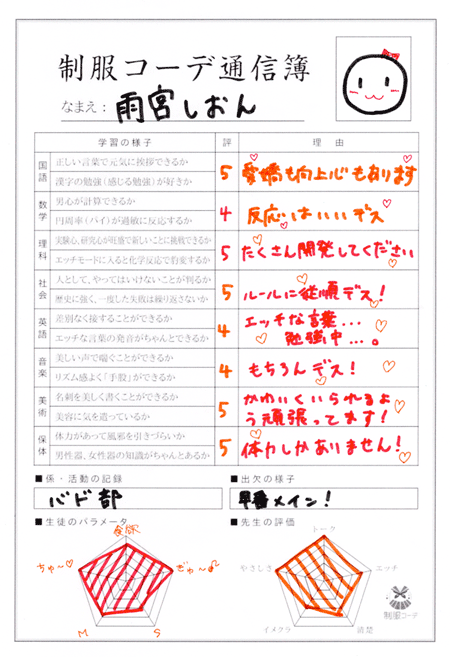 制服コーデ通信簿
なまえ： 雨宮しおん
学習の様子 評 理由
国語 正しい言葉で元気に挨拶できるか
漢字の勉強(感じる勉強)が好きか
5 愛嬌も向上心もあります
数学 男心が計算できるか
円周率(パイ)が過敏に反応するか
4 反応はいいデス
理科 実験心、研究心が旺盛で新しいことに挑戦できるか
エッチモードに入ると化学反応で豹変するか
5 たくさん開発してください
社会 人として、やってはいけないことが判るか
歴史に強く、一度した失敗は繰り返さないか
5 ルールに従順デス!
英語 差別なく接することができるか
エッチな言葉の発音がちゃんとできるか
4 エッチな言葉...
勉強中...。
音楽 美しい声で喘ぐことができるか
リズム感よく「手股」ができるか
4 もちろんデス!
美術 名刺を美しく書くことができるか
美容に気を遣っているか
5 かわいくいられるよ
う頑張ってます!
保体 体力があって風邪を引きづらいか
男性器、女性器の知識がちゃんとあるか
5 体力しかありません!
■係・活動の記録
バド部
■出欠の様子
早番メイン!
■生徒のパラメータ
食欲
ちゅ〜
ぎゅ〜
M
S
■先生の評価
トーク
やさしさ
エッチ
イメクラ
清楚
制服コーデ